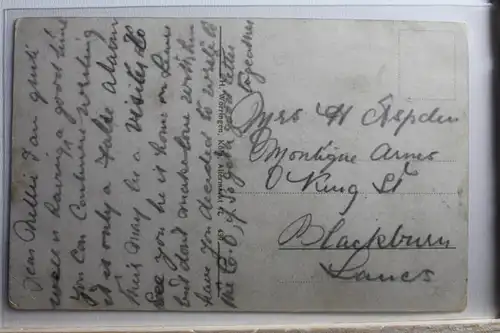 Dear Nellie I am quite
well & having a good time
you can continue writing
it is only a false alarm
there may be a visitor to
see you he is home on leave
but don't make love with him
have you decided to write to
the C.O., if so get
together
Mrs H Aspden
Montigue Arms
King St
Blackburn
Lancs